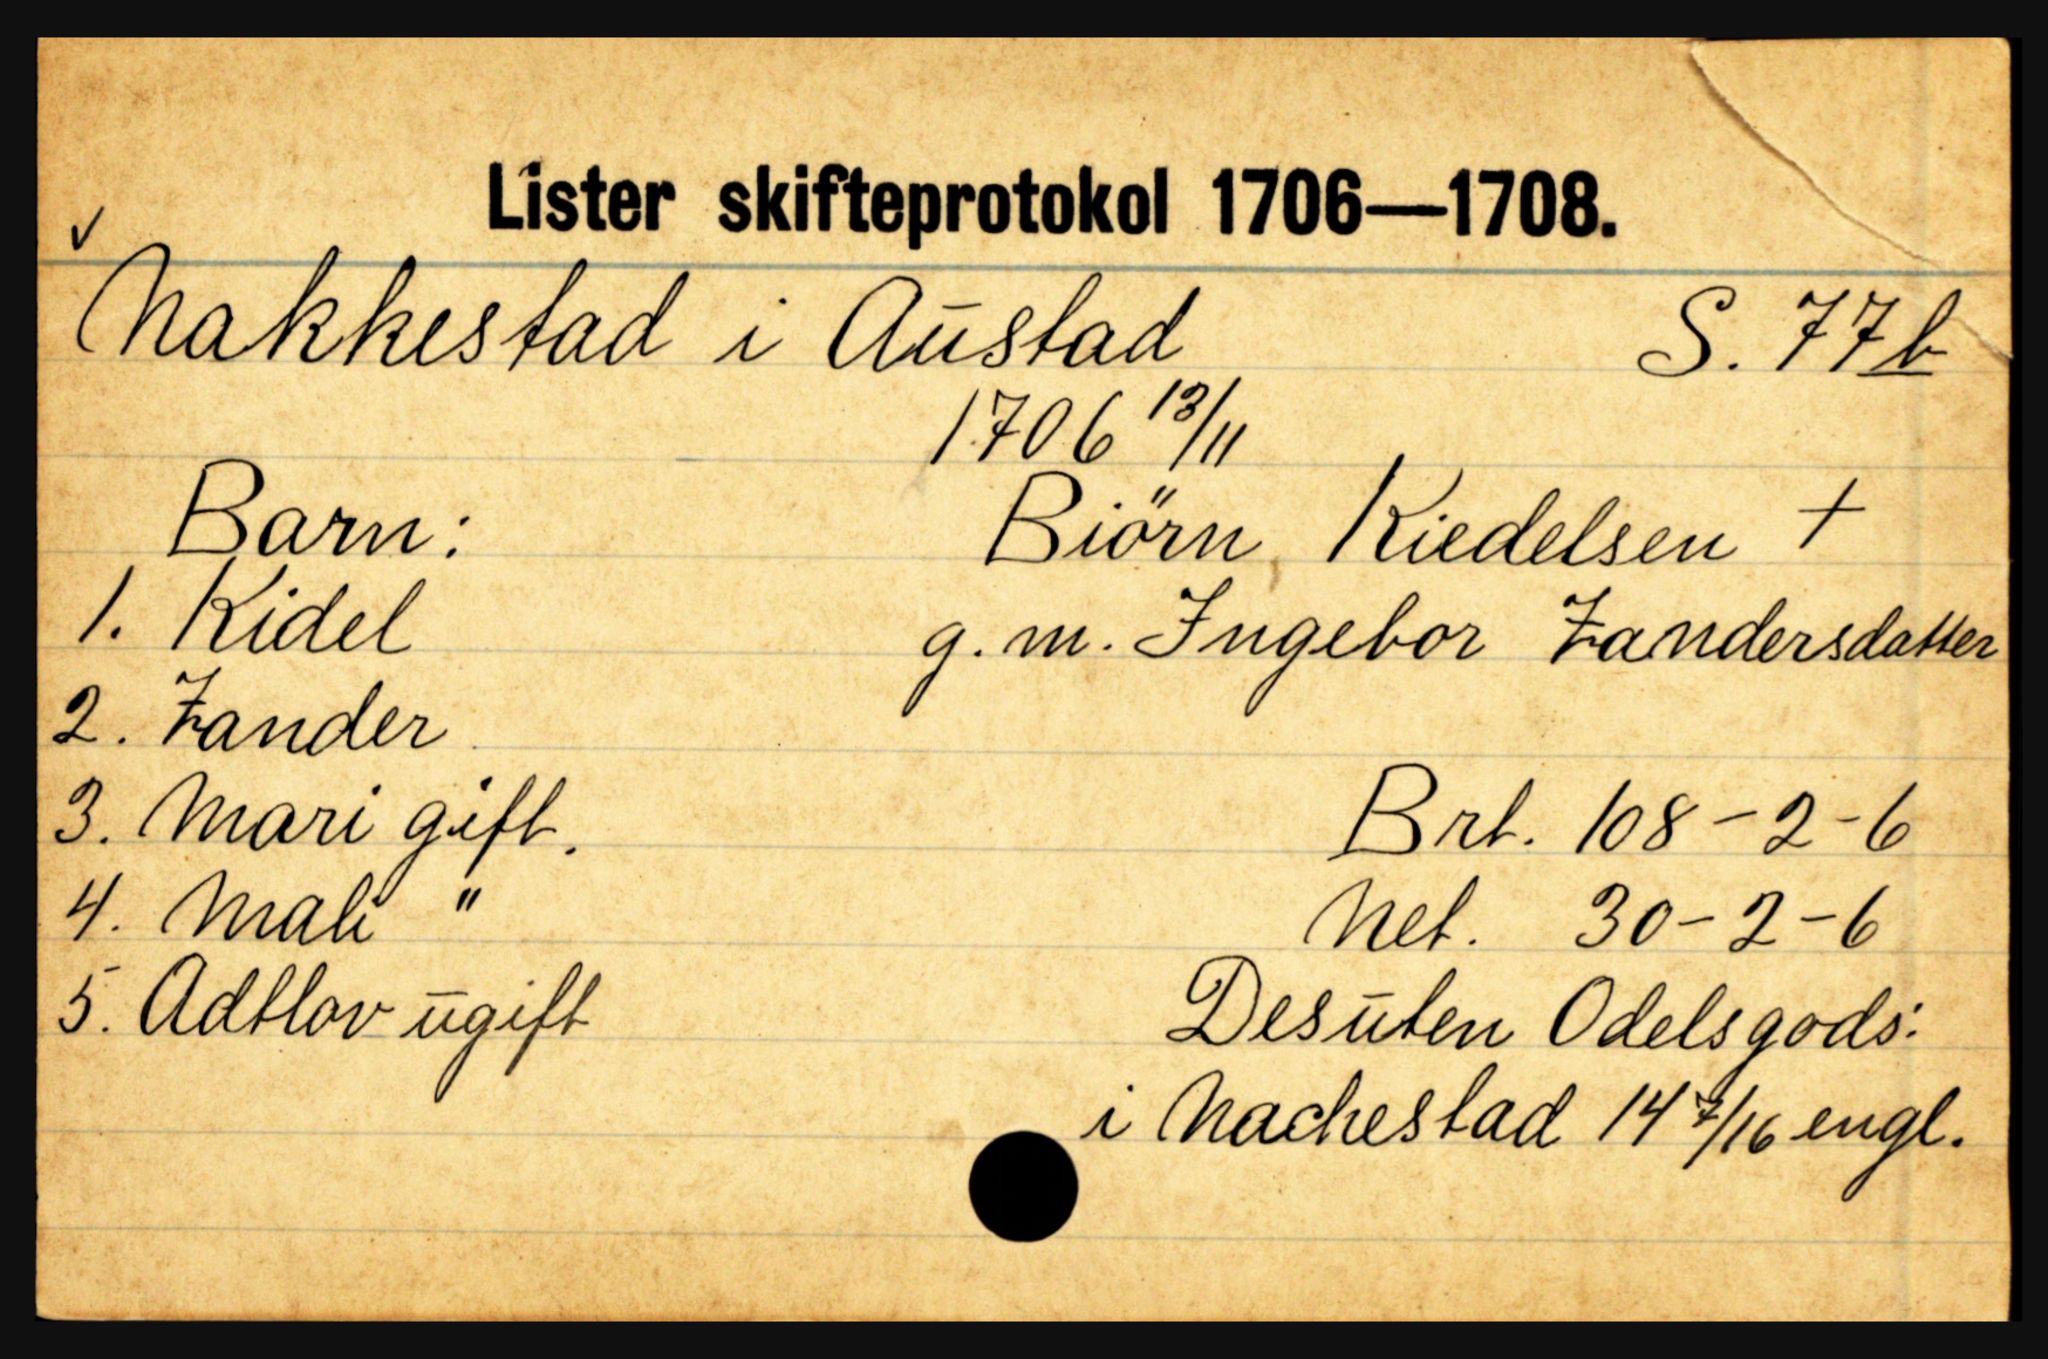 Lister skifteprotokol 1706—1708.
✓
Nakkestad i Aūstad S. 77b
1706 13/11
Barn: Biörn Kiedelsen +
1. Kidel g. m. Ingebor Zandersdatter
2. Zander
3. Mari gift. Brt. 108-2-6
4. Mali " Net. 30-2-6
5. Adtlov ūgift Desūten Odelsgods:
i Nachestad 14 7/16 engl.